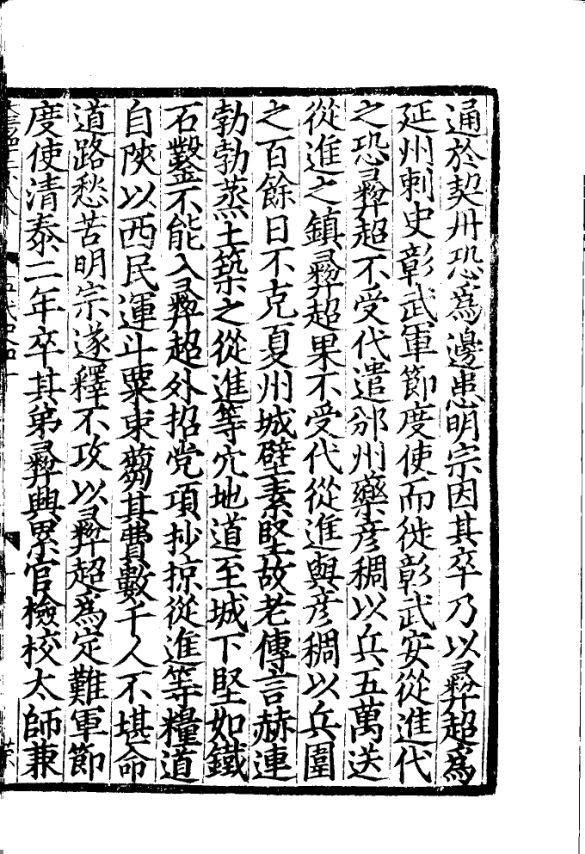 通於契丹恐爲邊患明宗因其卒乃以彝超爲
延州刺史彰武軍節度使而徙彰武安從進代
之恐彝超不受代遣邠州藥彥稠以兵五萬送
從進之鎮彝超果不受代從進與彥稠以兵圍
之百餘日不克夏州城壁素堅故老傳言赫連
勃勃蒸土築之從進等穴地道至城下堅如鐵
石鑿不能入彝超外招党項抄掠從進等糧道
自陝以西民運斗粟束芻其費數千人不堪命
道路愁苦明宗遂釋不攻以彝超爲定難軍節
度使清泰二年卒其弟彝興累官檢校太師兼